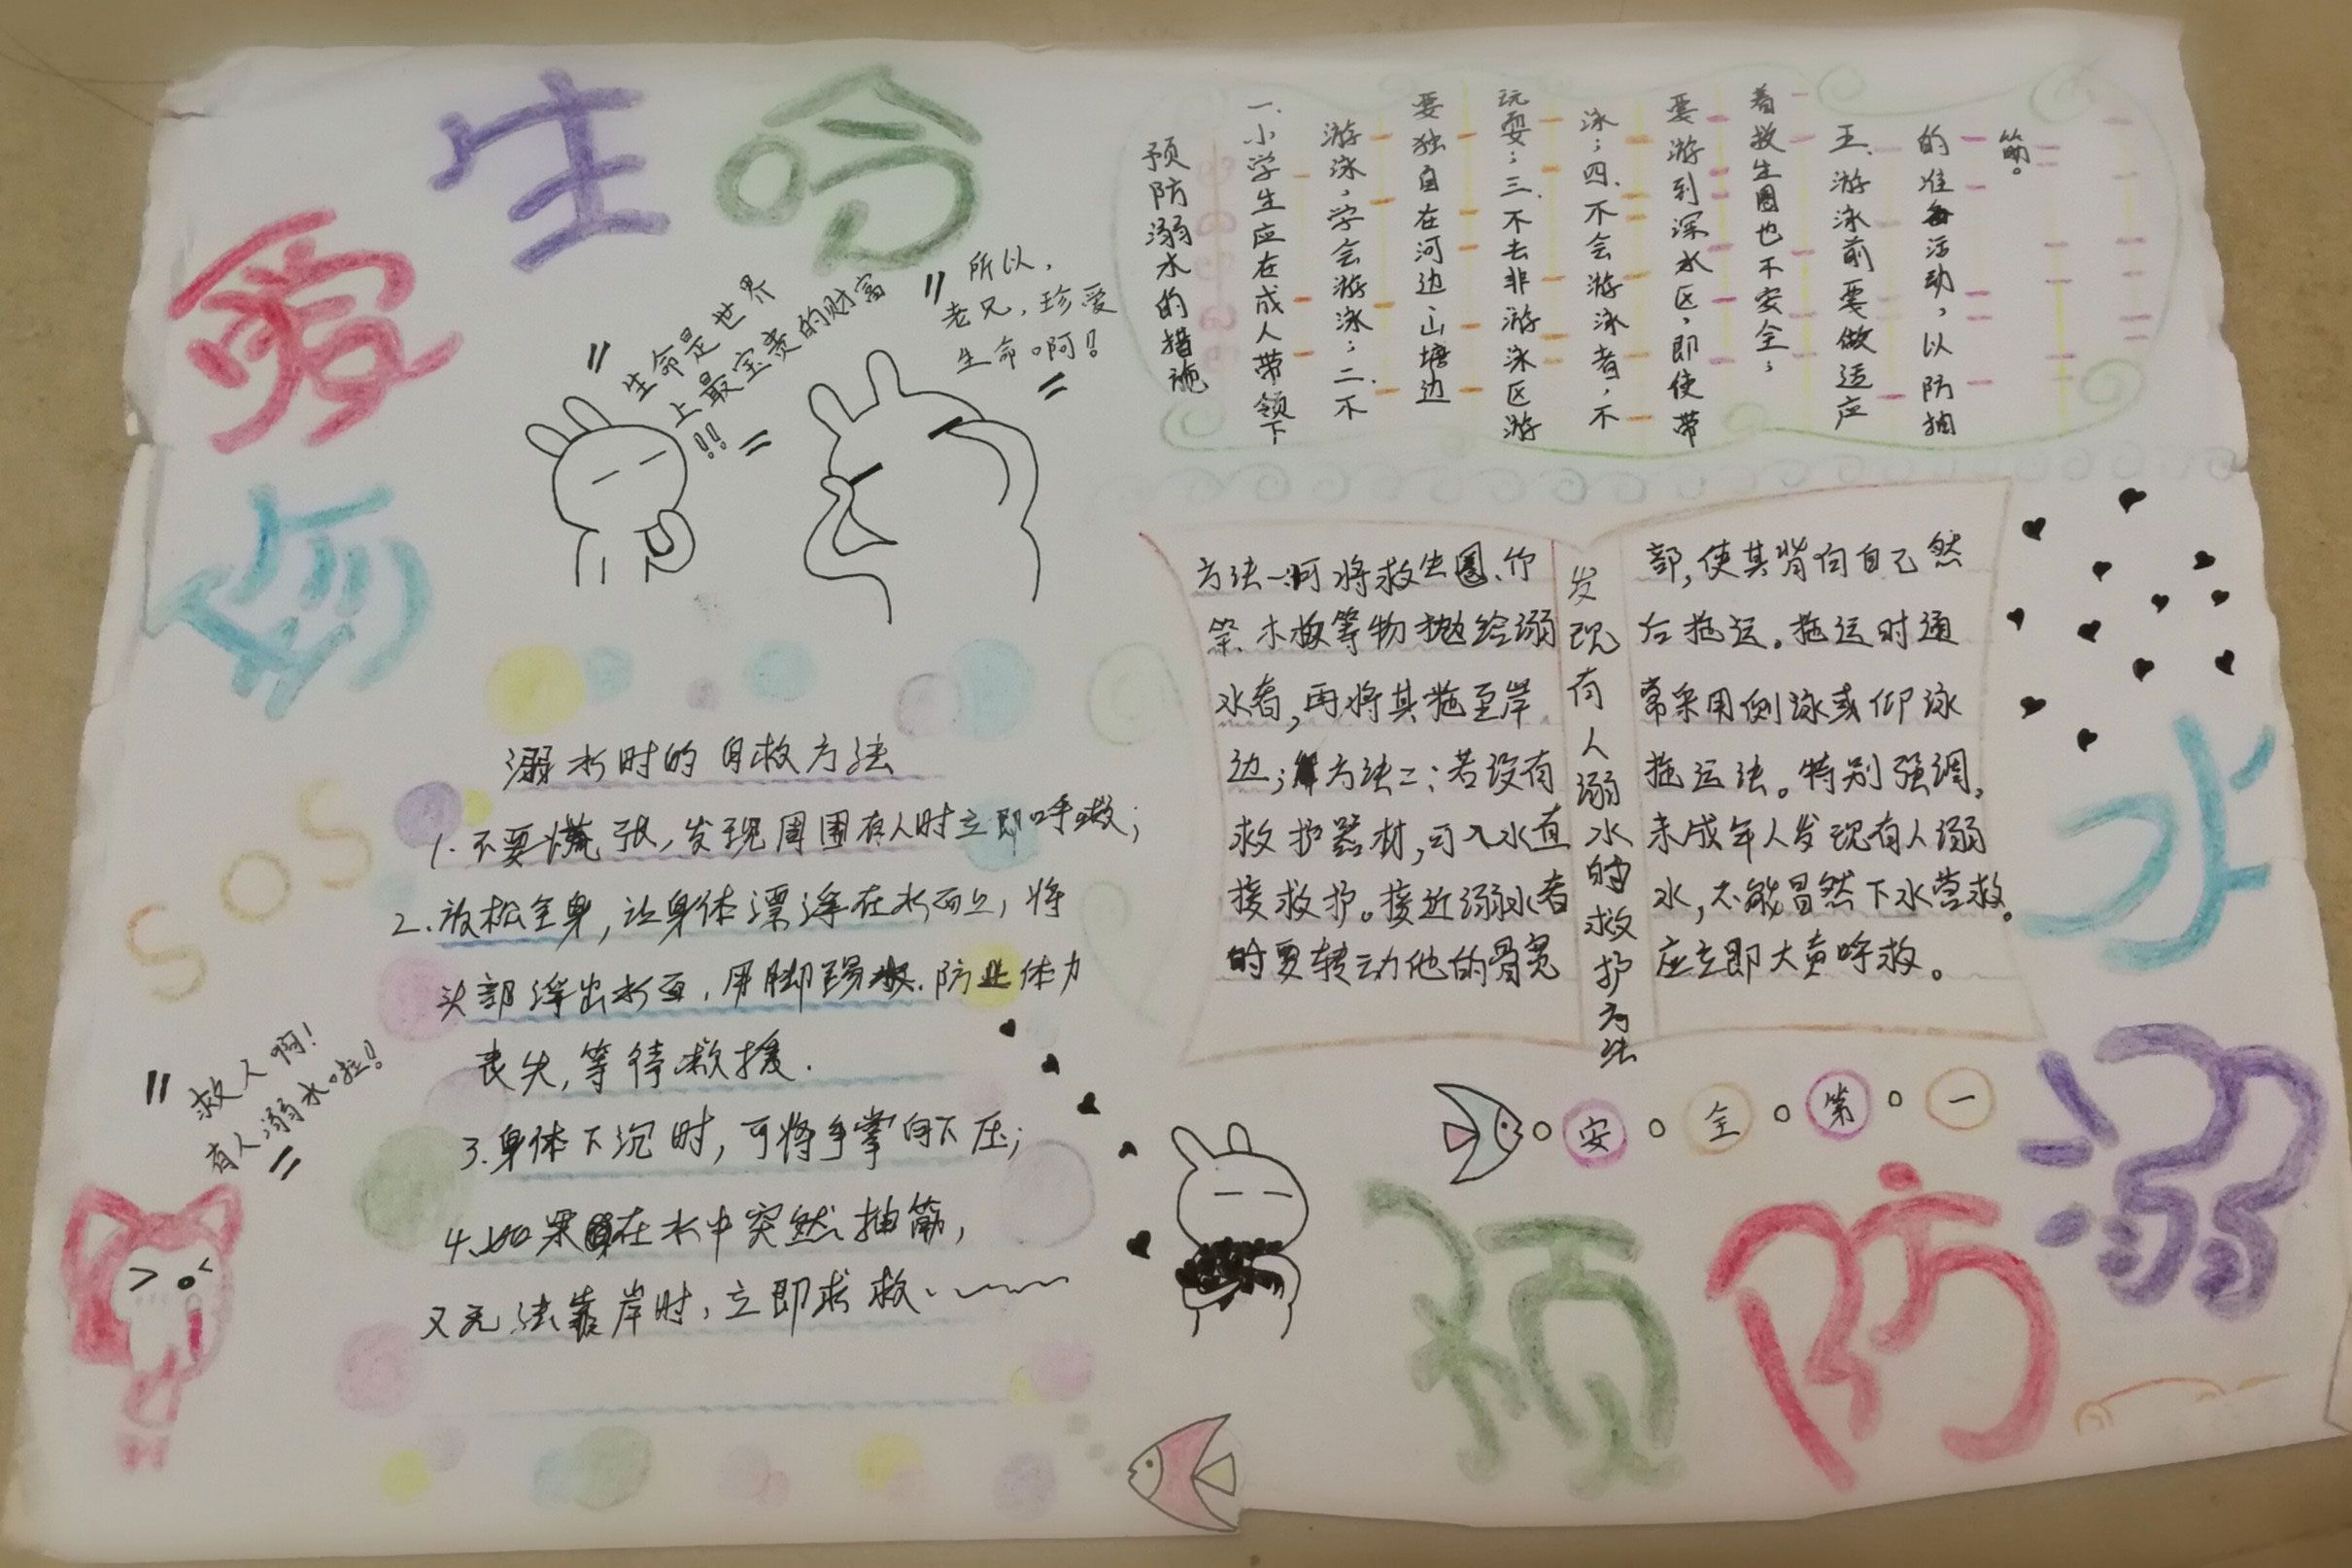 珍
爱
生
命
"生命是世界
上最宝贵的财富
!!"
"所以，
老兄，珍爱
生命啊！"
预防溺水的措施
一.小学生应在成人带领下
游泳，学会游泳；二.不
要独自在河边、山塘边
玩耍；三.不去非游泳区游
泳；四.不会游泳者，不
要游到深水区，即使带
着救生圈也不安全；
五.游泳前要做适应
的准备活动，以防抽
筋。
溺水时的自救方法
1.不要慌张，发现周围有人时立即呼救；
2.放松全身，让身体漂浮在水面上，将
头部浮出水面，用脚踢水.防止体力
丧失，等待救援.
3.身体下沉时，可将手掌向下压；
4.如果在水中突然抽筋，
又无法靠岸时，立即求救.
发现有人溺水时的救护方法
方法一:可将救生圈、竹
竿、木板等物抛给溺
水者，再将其拖至岸
边；方法二：若没有
救护器材，可入水直
接救护。接近溺水者
时要转动他的骨宽
部，使其背向自己然
后拖运。拖运时通
常采用侧泳或仰泳
拖运法。特别强调，
未成年人发现有人溺
水，不能冒然下水营救。
应立即大声呼救。
SOS
"救人啊！
有人溺水啦！！"
安全第一
预
防
溺
水